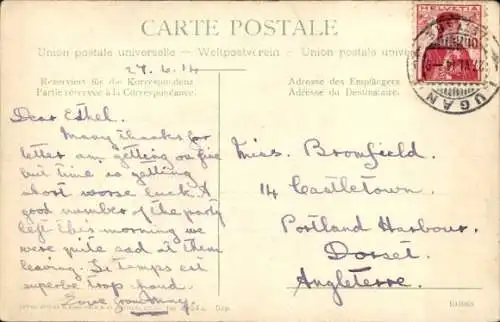 CARTE POSTALE
Union postale universelle — Weltpostverein — Union postale
27.6.14
Reserviert für die Korrespondenz
Partie réservée à la Correspondance.
Adresse des Empfängers
Adresse du Destinataire.
HELVETIA
Dear Ethel.
Many thanks for
letter am getting on fine
but time is getting
short worse luck. A
good number of the party
left this morning we
were quite sad at them
leaving. Le temps est
superbe trop chaud.
Love from May.
Miss. Bromfield.
14 Castletown.
Portland Harbour.
Dorset.
Angleterre.